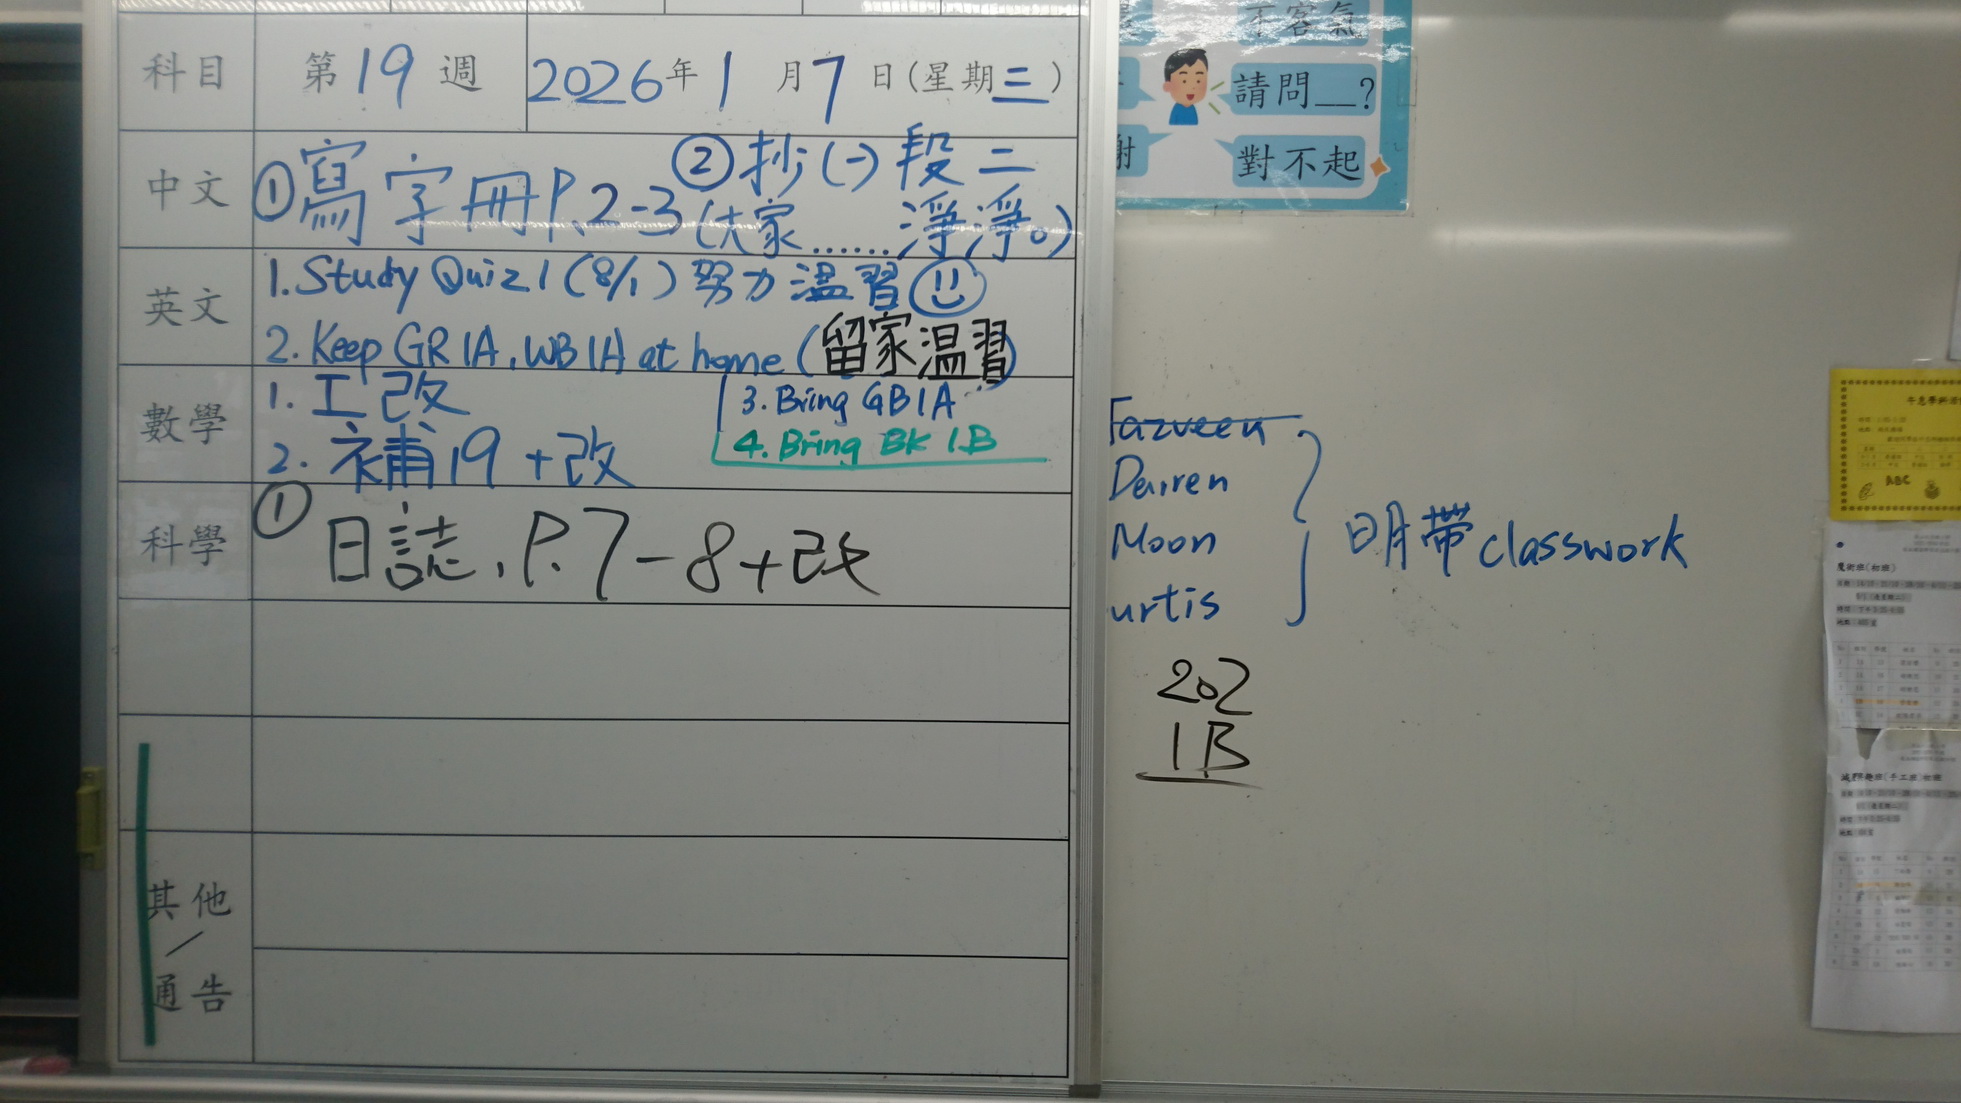 科目 第19週 2026年1月7日(星期三)
中文 ①寫字冊P.2-3 ②抄(一)段二
(大家......淨淨。)
英文 1. Study Quiz 1 (8/1) 努力溫習
2. Keep GR1A, WB1A at home (留家温習)
3. Bring GB1A
4. Bring BK 1B
數學 1. 工改
2. 補19+改
科學 ① 日誌, P.7-8+改
其他
/
通告
不客氣
請問__?
對不起
謝
Tazveen
Dairen
Moon
urtis
明帶 classwork
202
1B
ABC
魔術班(初班)